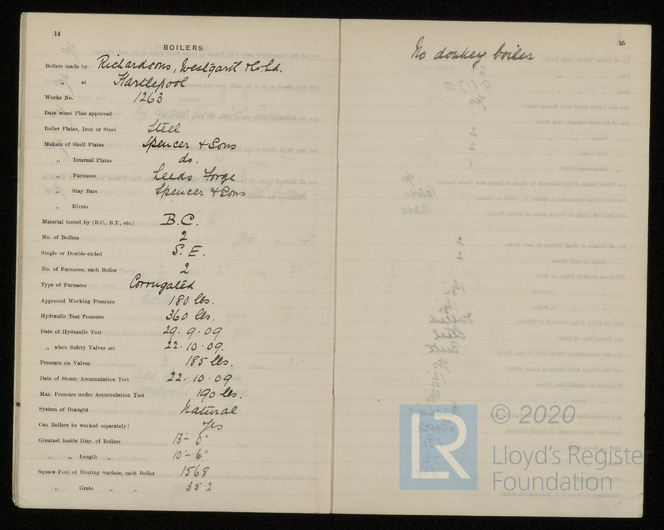 14
BOILERS.
Boilers made by Richardsons, Westgarth & Co. Ld.
„ at Hartlepool
Works No. 1263
Date when Plan approved
Boiler Plates, Iron or Steel Steel
Makers of Shell Plates Spencer & Sons
„ Internal Plates do.
„ Furnaces Leeds Forge
„ Stay Bars Spencer & Sons
„ Rivets
Material tested by (B.C., B.T., etc.) B.C.
No. of Boilers 2
Single or Double-ended S.E.
No. of Furnaces, each Boiler 2
Type of Furnaces Corrugated
Approved Working Pressure 180 lbs.
Hydraulic Test Pressure 360 lbs.
Date of Hydraulic Test 29.9.09
„ when Safety Valves set 22.10.09.
Pressure on Valves 185 lbs.
Date of Steam Accumulation Test 22.10.09
Max. Pressure under Accumulation Test 190 lbs.
System of Draught Natural
Can Boilers be worked separately? Yes
Greatest Inside Diar. of Boilers
„ „ Length „ 10'-6"
Square Feet of Heating Surface, each Boiler 1568
„ Grate „ „ 35.2
15
No donkey boiler
© 2020
LR
Lloyd's Register
Foundation